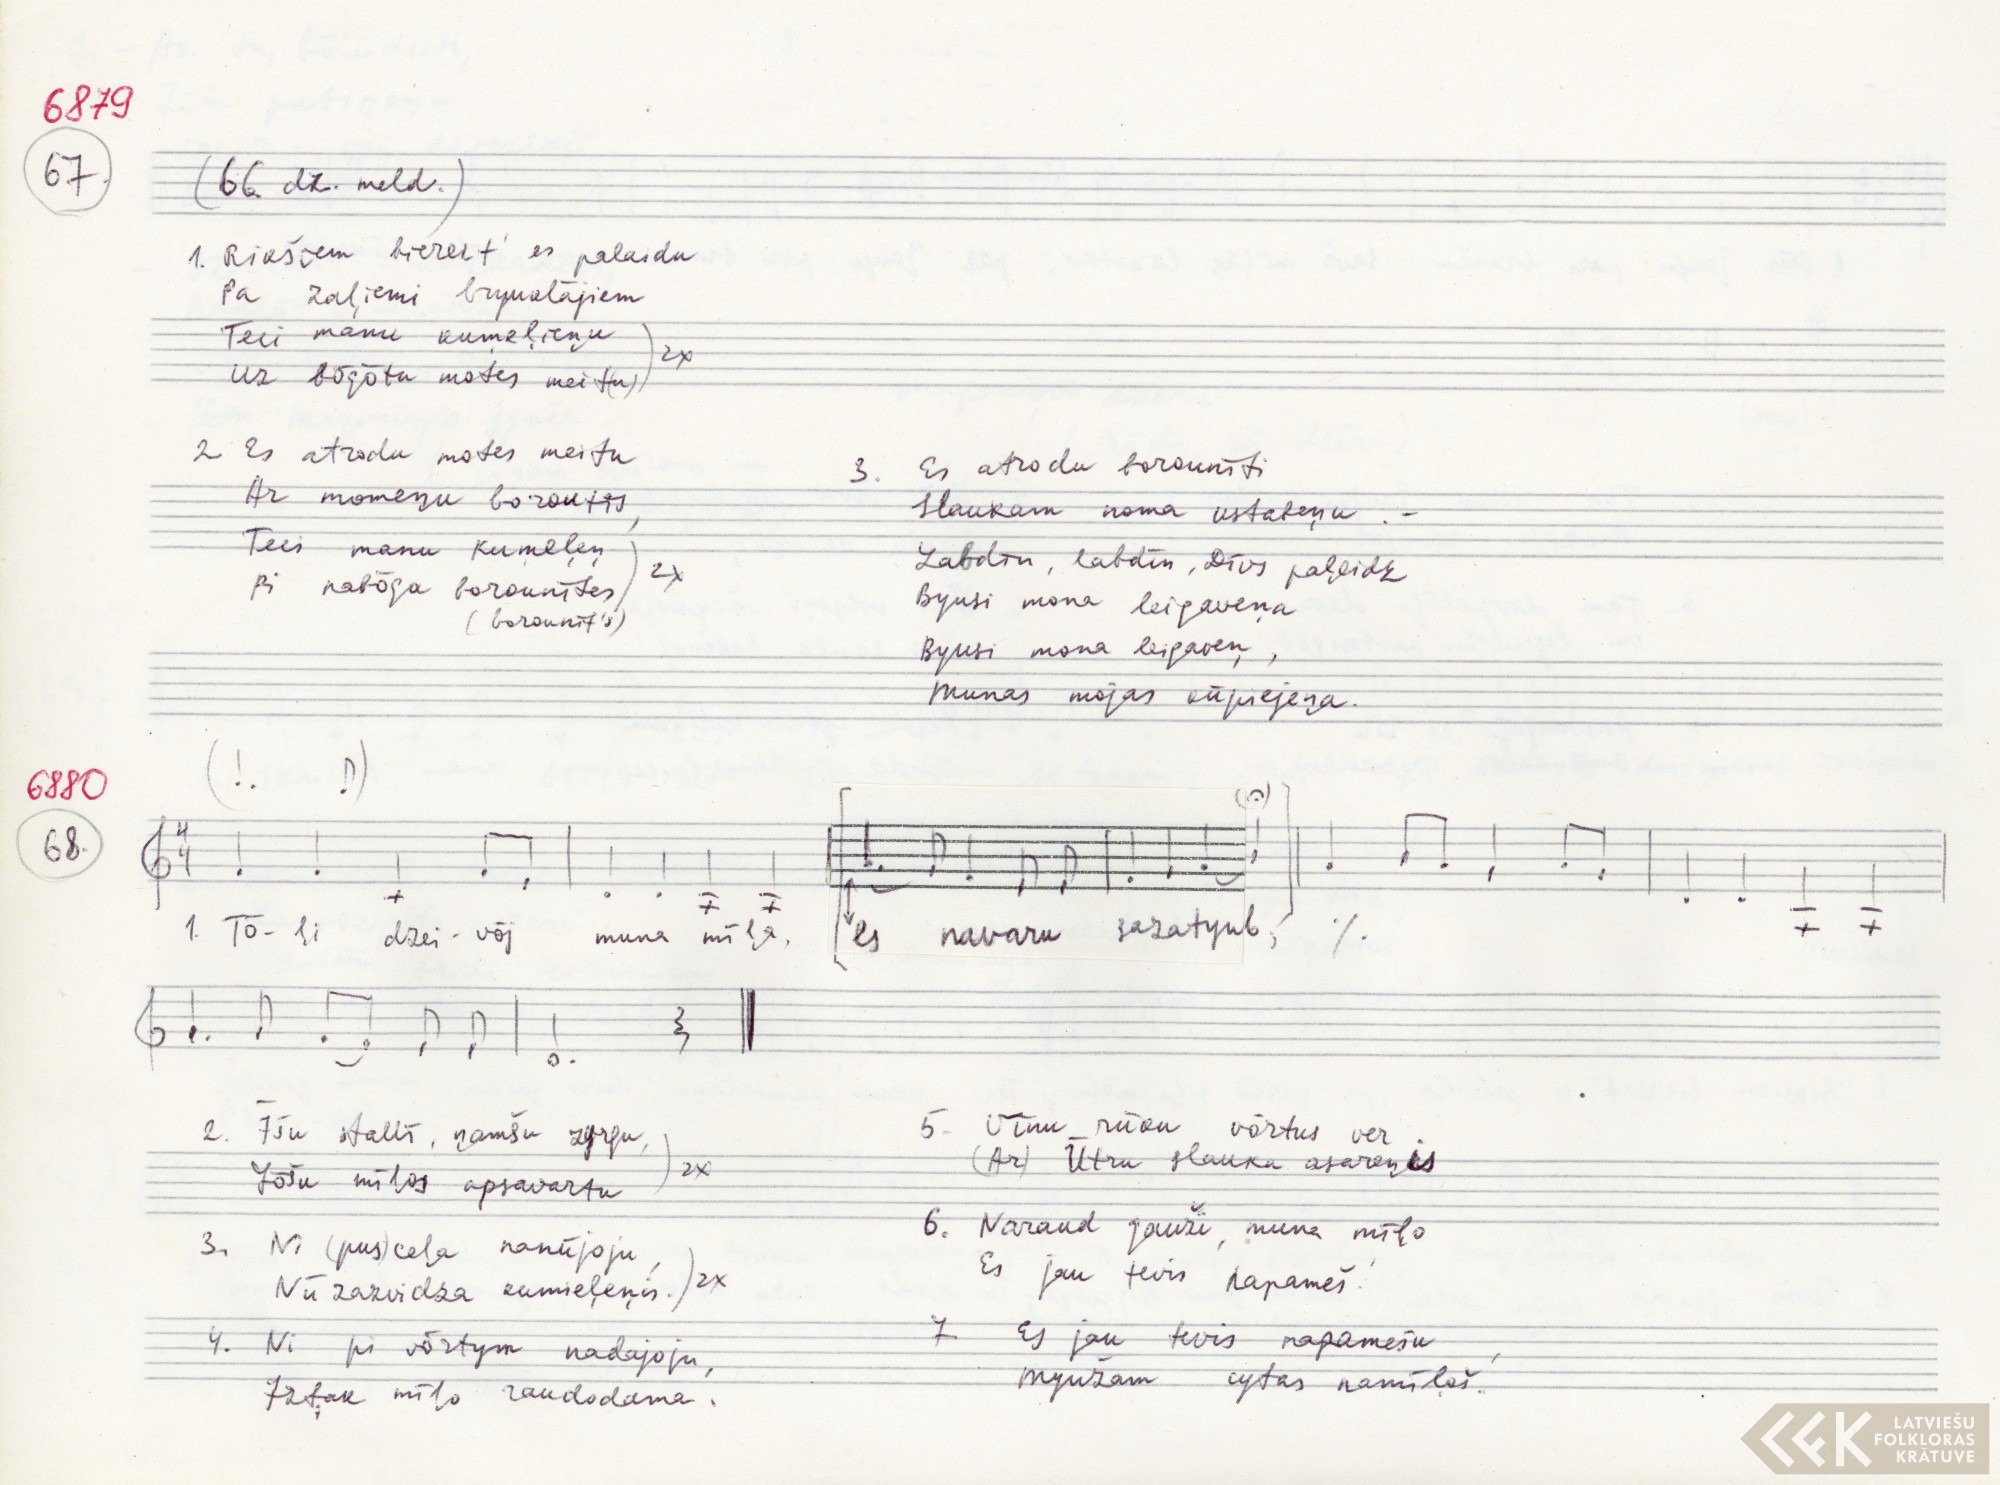 6879
67.
(66. dz. meld.)
1. Rikšiem bierezt' es palaidu
Pa zaļiemi brymolājiem
Teci manu kumeļieņu
Uz bōgōtu motes meitu) 2x
2. Es atrodu motes meitu
Ar momeņu boroutīs,
Teci manu kumeļeņ
Pi nabōga borounītes) 2x
(borounīt's)
3. Es atrodu borounīti
Slaukam noma ustabeņu.-
Labdīn, labdīn, Dīvs paļeidz
Byusi mona leigaveņa
Byusi mona leigaveņ,
Munas mōjas kūpiejeņa.
6880
68.
4/4
1. Tō-li dzei-vōj muna mīļa, [es navaru sazatyub;] ·/.
2. Īšu stallī, ņamšu zyrgu,
Jōšu mīļos apsavartu) 2x
3. Ni (pus)ceļa nanūjoju,
Nū zazvidza kumieļeņis.) 2x
4. Ni pi vōrtym nadajoju,
Iztak mīļo raudodama.
5. Vīnu rūku vōrtus ver
(Ar) Ūtru slauka asareņis
6. Naraud gauži, muna mīļo
Es jau tevis napameš!
7. Es jau tevis napamešu,
Myužam cytas namīļoš.
LATVIEŠU
FOLKLORAS
KRĀTUVE